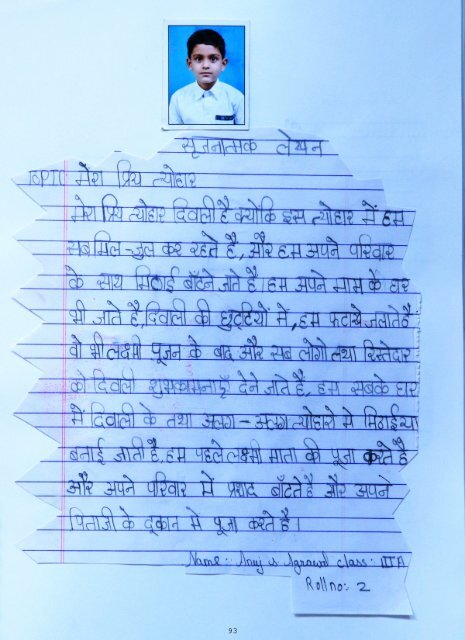 सृजनात्मक लेखन
TOPIC मेरा प्रिय त्योहार
मेरा प्रिय त्योहार दिवाली है क्योकि इस त्योहार में हम
सब मिल-जुल कर रहते है, और हम अपने परिवार
के साथ मिठाई बाँटने जाते है। हम अपने मामा के घर
भी जाते है, दिवाली की छुट्टियों मे, हम फटाखे जलाते है
वो भी लक्ष्मी पूजन के बाद और सब लोगो तथा रिस्तेदार
को दिवाली शुभकामनाएँ देने जाते है, हम सबके घर
में दिवाली के तथा अलग-अलग त्योहारो मे मिठाईया
बनाई जाती है, हम पहले लक्ष्मी माता की पूजा करते है
और अपने परिवार में प्रशाद बाँटते है और अपने
पिताजी के दूकान मे पूजा करते है।
Name: Anuj v. Agrawal class: III A
Roll no: 2
93